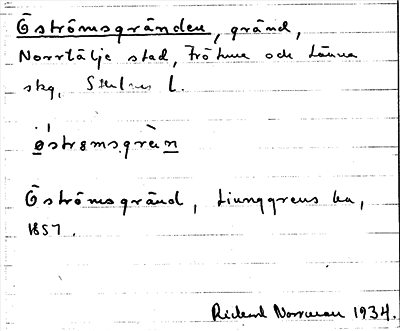 Öströmsgränden, gränd,
Norrtälje stad, Frötuna och Länna
skg, Sthlms l.
öströmsgrän
Öströmsgränd, Ljunggrens ka,
1857.
Rickard Norrman 1934.